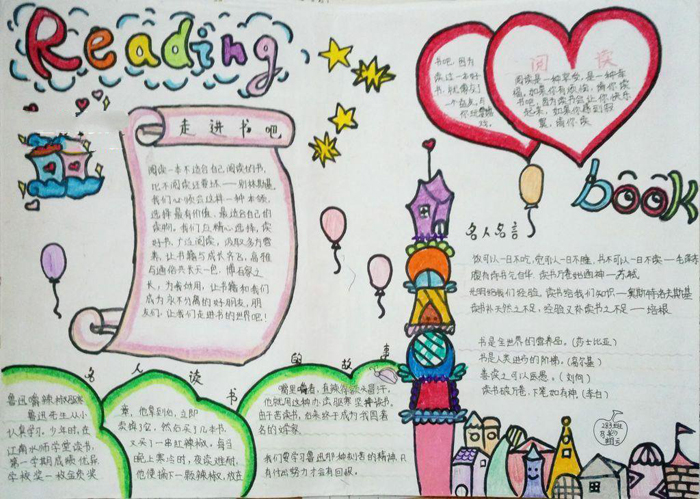 Reading
走进书吧
阅读一本不适合自己阅读的书,
比不阅读还要坏——别林斯基,
我们必须会这样一种本领,
选择最有价值、最适合自己的
读物。我们应精心选择,读
好书,广泛阅读,汲取多方营
养,让书籍与成长齐飞,高雅
与通俗共长天一色,博百家之
长,为我所用,让书籍和我们
成为永不分离的好朋友,朋
友们,让我们走进书的世界吧!
书吧,因为
读过一本好
书,就像交了
一个益友,
阅读
阅读是一种享受,是一种幸
福,如果你有
书吧,因为读书会让你快乐
起来,如果你感到寂
寞,请你读
book
名人名言
饭可以一日不吃,觉可以一日不睡,书不可以一日不读——毛泽东
腹有诗书气自华,读书万卷始通神——苏轼
光明给我们经验,读书给我们知识——奥斯特洛夫斯基
读书补天然之不足,经验又补读书之不足——培根
书是全世界的营养品。(莎士比亚)
书是人类进步的阶梯。(高尔基)
喜读之可以医愚。(刘向)
读书破万卷,下笔如有神(李白)
名人读书的故事
鲁迅嚼辣椒驱寒
鲁迅先生从小
认真学习,少年时,在
江南水师学堂读书,
第一学期成绩优异
学校奖一枚金质奖
章,他拿到后,立即
卖掉了它,然后买了几本书,
又买了一串红辣椒,每当
晚上寒冷时,夜读难耐,
他便摘下一颗辣椒,放在
嘴里嚼着,直辣得额头冒汗,
他就用这种办法驱寒坚持读书,
由于苦读书,后来终于成为我国著名
的作家
我们要学习鲁迅那种刻苦的精神,只
有付出努力才会有回报。